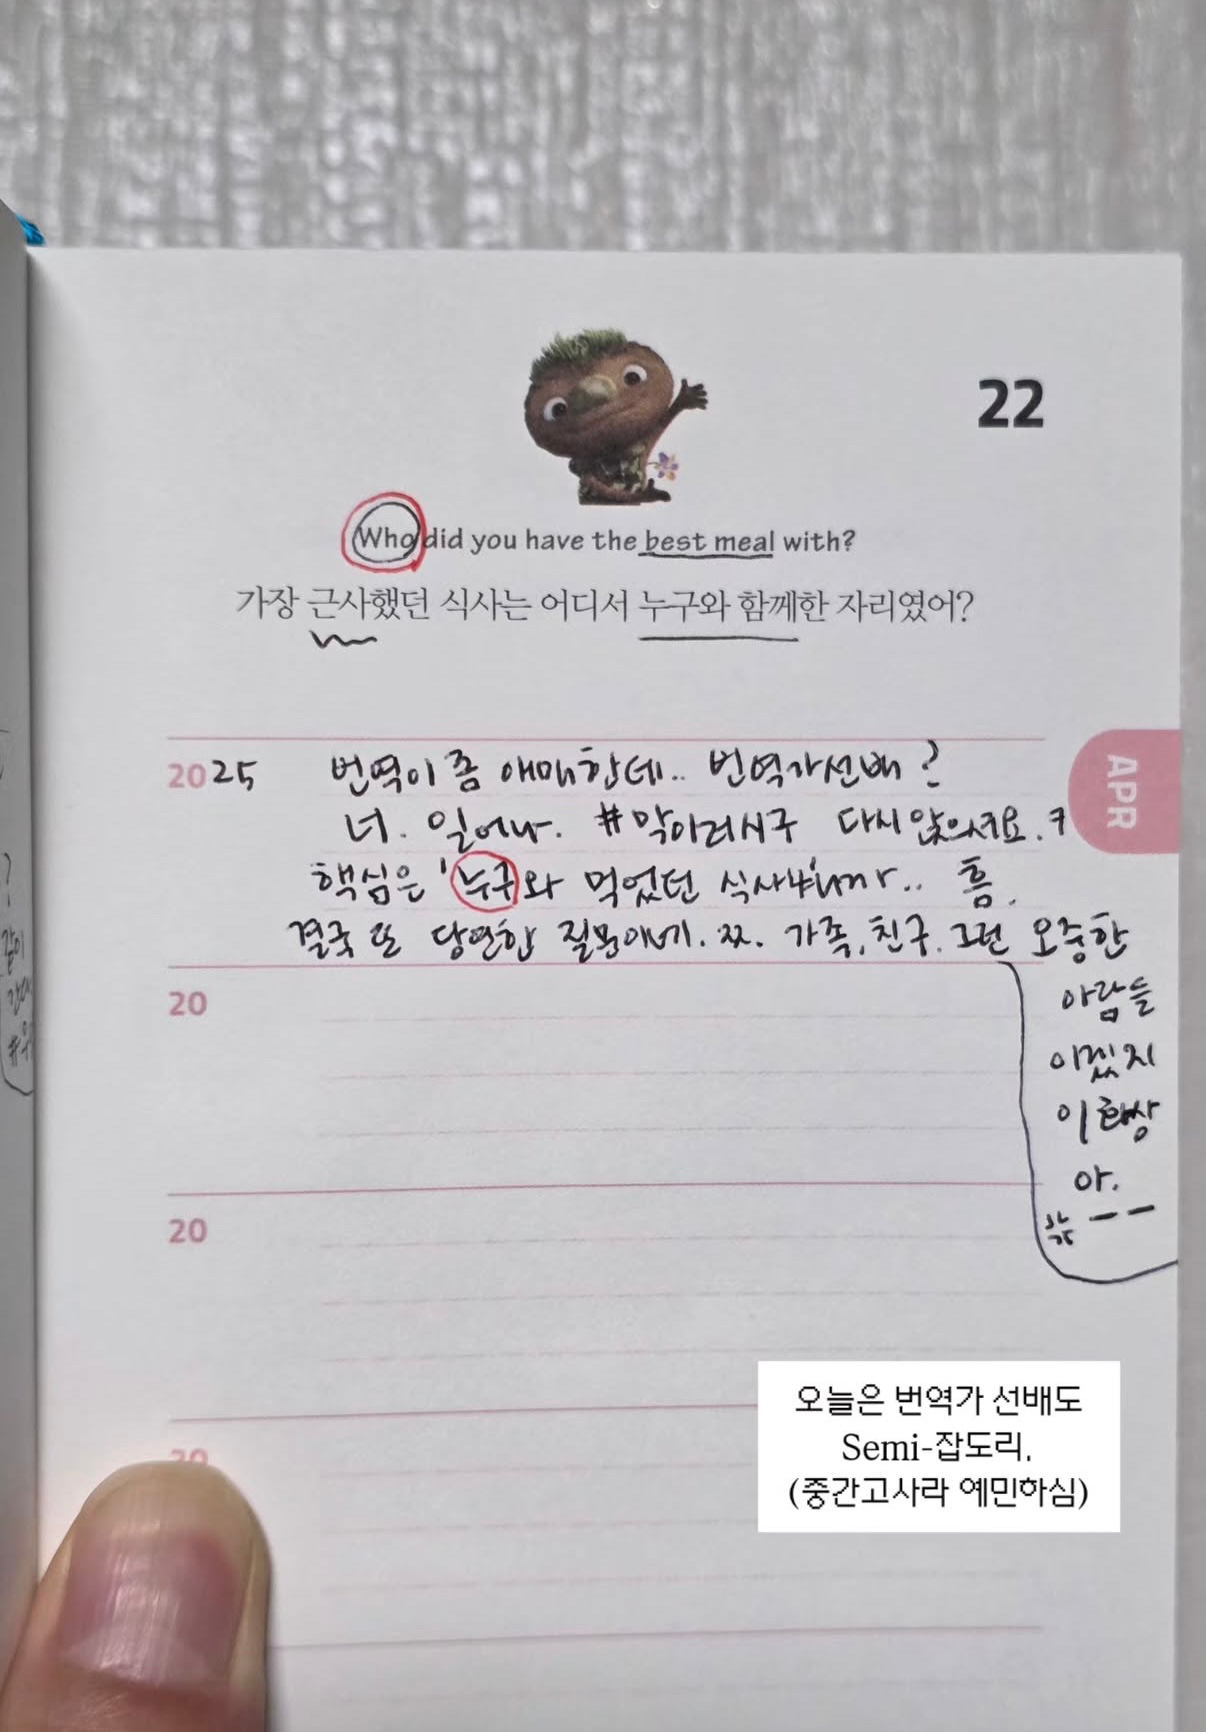 22
Who did you have the best meal with?
가장 근사했던 식사는 어디서 누구와 함께한 자리였어?
APR
2025 번역이 좀 애매한데.. 번역가선배?
너. 일어나. #막이러시구 다시 앉으셔요.ㅋ
핵심은 '누구와 먹었던 식사'니까.. 흠.
결국 또 당연한 질문이네. 쯔. 가족, 친구. 그런 오중한
아람들
이겠지
이 화상
아.
20
20
20
같이
오늘은 번역가 선배도
Semi-잡도리.
(중간고사라 예민하심)